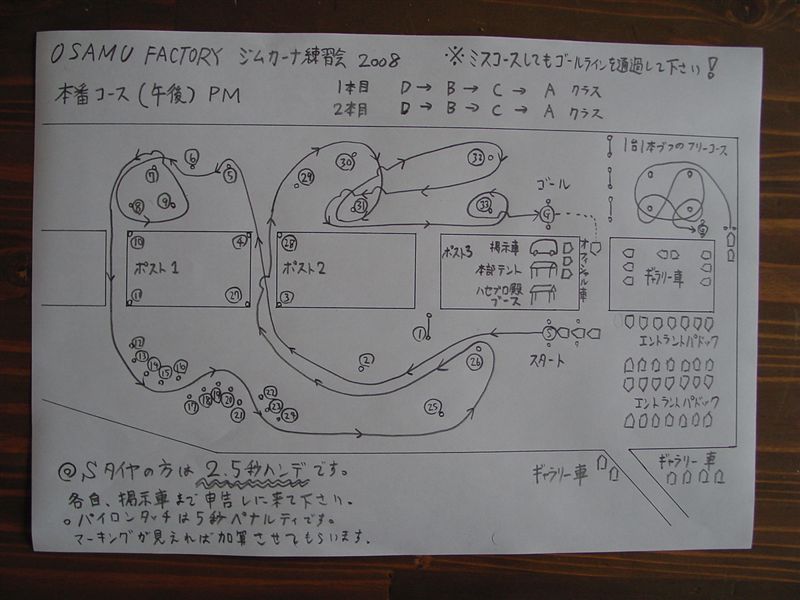 OSAMU FACTORY ジムカーナ練習会 2008
※ミスコースしてもゴールラインを通過して下さい!
本番コース(午後) PM
1本目 D→B→C→A クラス
2本目 D→B→C→A クラス
1台1本づつのフリーコース
6
7
5
8
9
30
29
32
31
33
ゴール
G
G
10
4
ポスト1
11
27
28
ポスト2
3
ポスト3
掲示車
本部テント
ハセプロ殿
ブース
オフィシャル車
ギャラリー車
1
S
スタート
エントラントパドック
エントラントパドック
12
13
14
15
16
17
18
19
20
21
22
23
24
2
25
26
ギャラリー車
ギャラリー車
@Sタイヤの方は2.5秒ハンデです。
各自、掲示車まで申告しに来て下さい。
。パイロンタッチは5秒ペナルティです。
マーキングが見えれば加算させてもらいます.